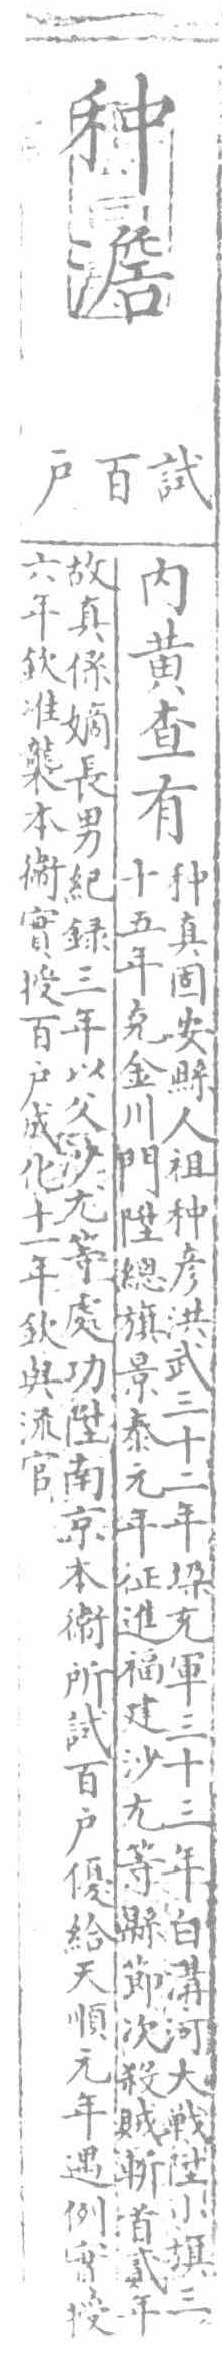 种澹
試百戶
内黄查有
种真固安縣人祖种彦洪武三十二年垜充軍三十三年白溝河大戰陞小旗三
十五年克金川門陞總旗景泰元年征進福建沙尤等縣節次殺賊斬首貳年
故真係嫡長男紀録三年以父沙尤等處功陞南京本衛所試百戶優給天順元年遇例實授
六年欽准襲本衛實授百戶成化十一年欽與流官